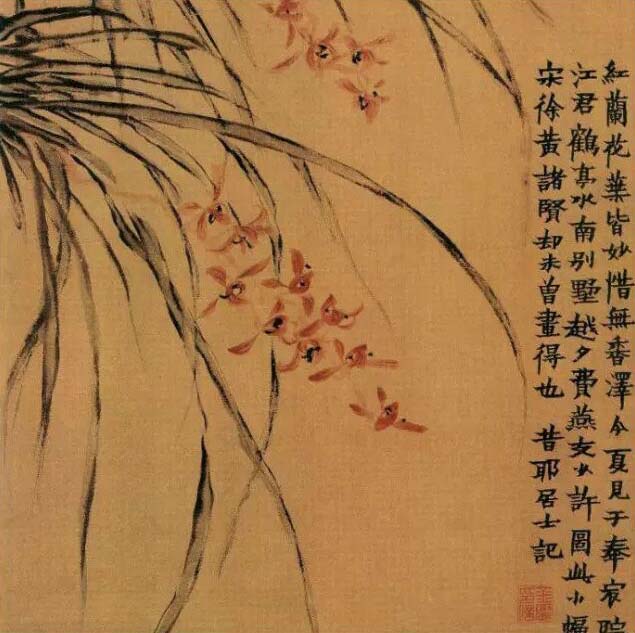 紅蘭花葉皆妙惜無香澤今夏見于奉宸院
江君鶴亭水南別墅越夕費燕支少許圖此小幅
宋徐黃諸賢却未曾畫得也 昔耶居士記